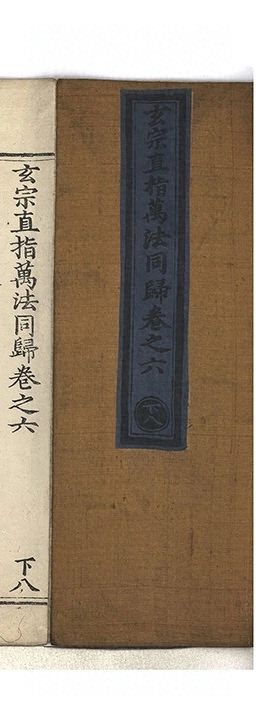 玄宗直指萬法同歸卷之六
下八
玄宗直指萬法同歸卷之六
下八